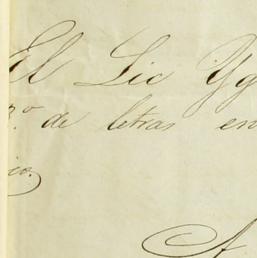 El Lic Yg
3.º de letras en
cio.
A